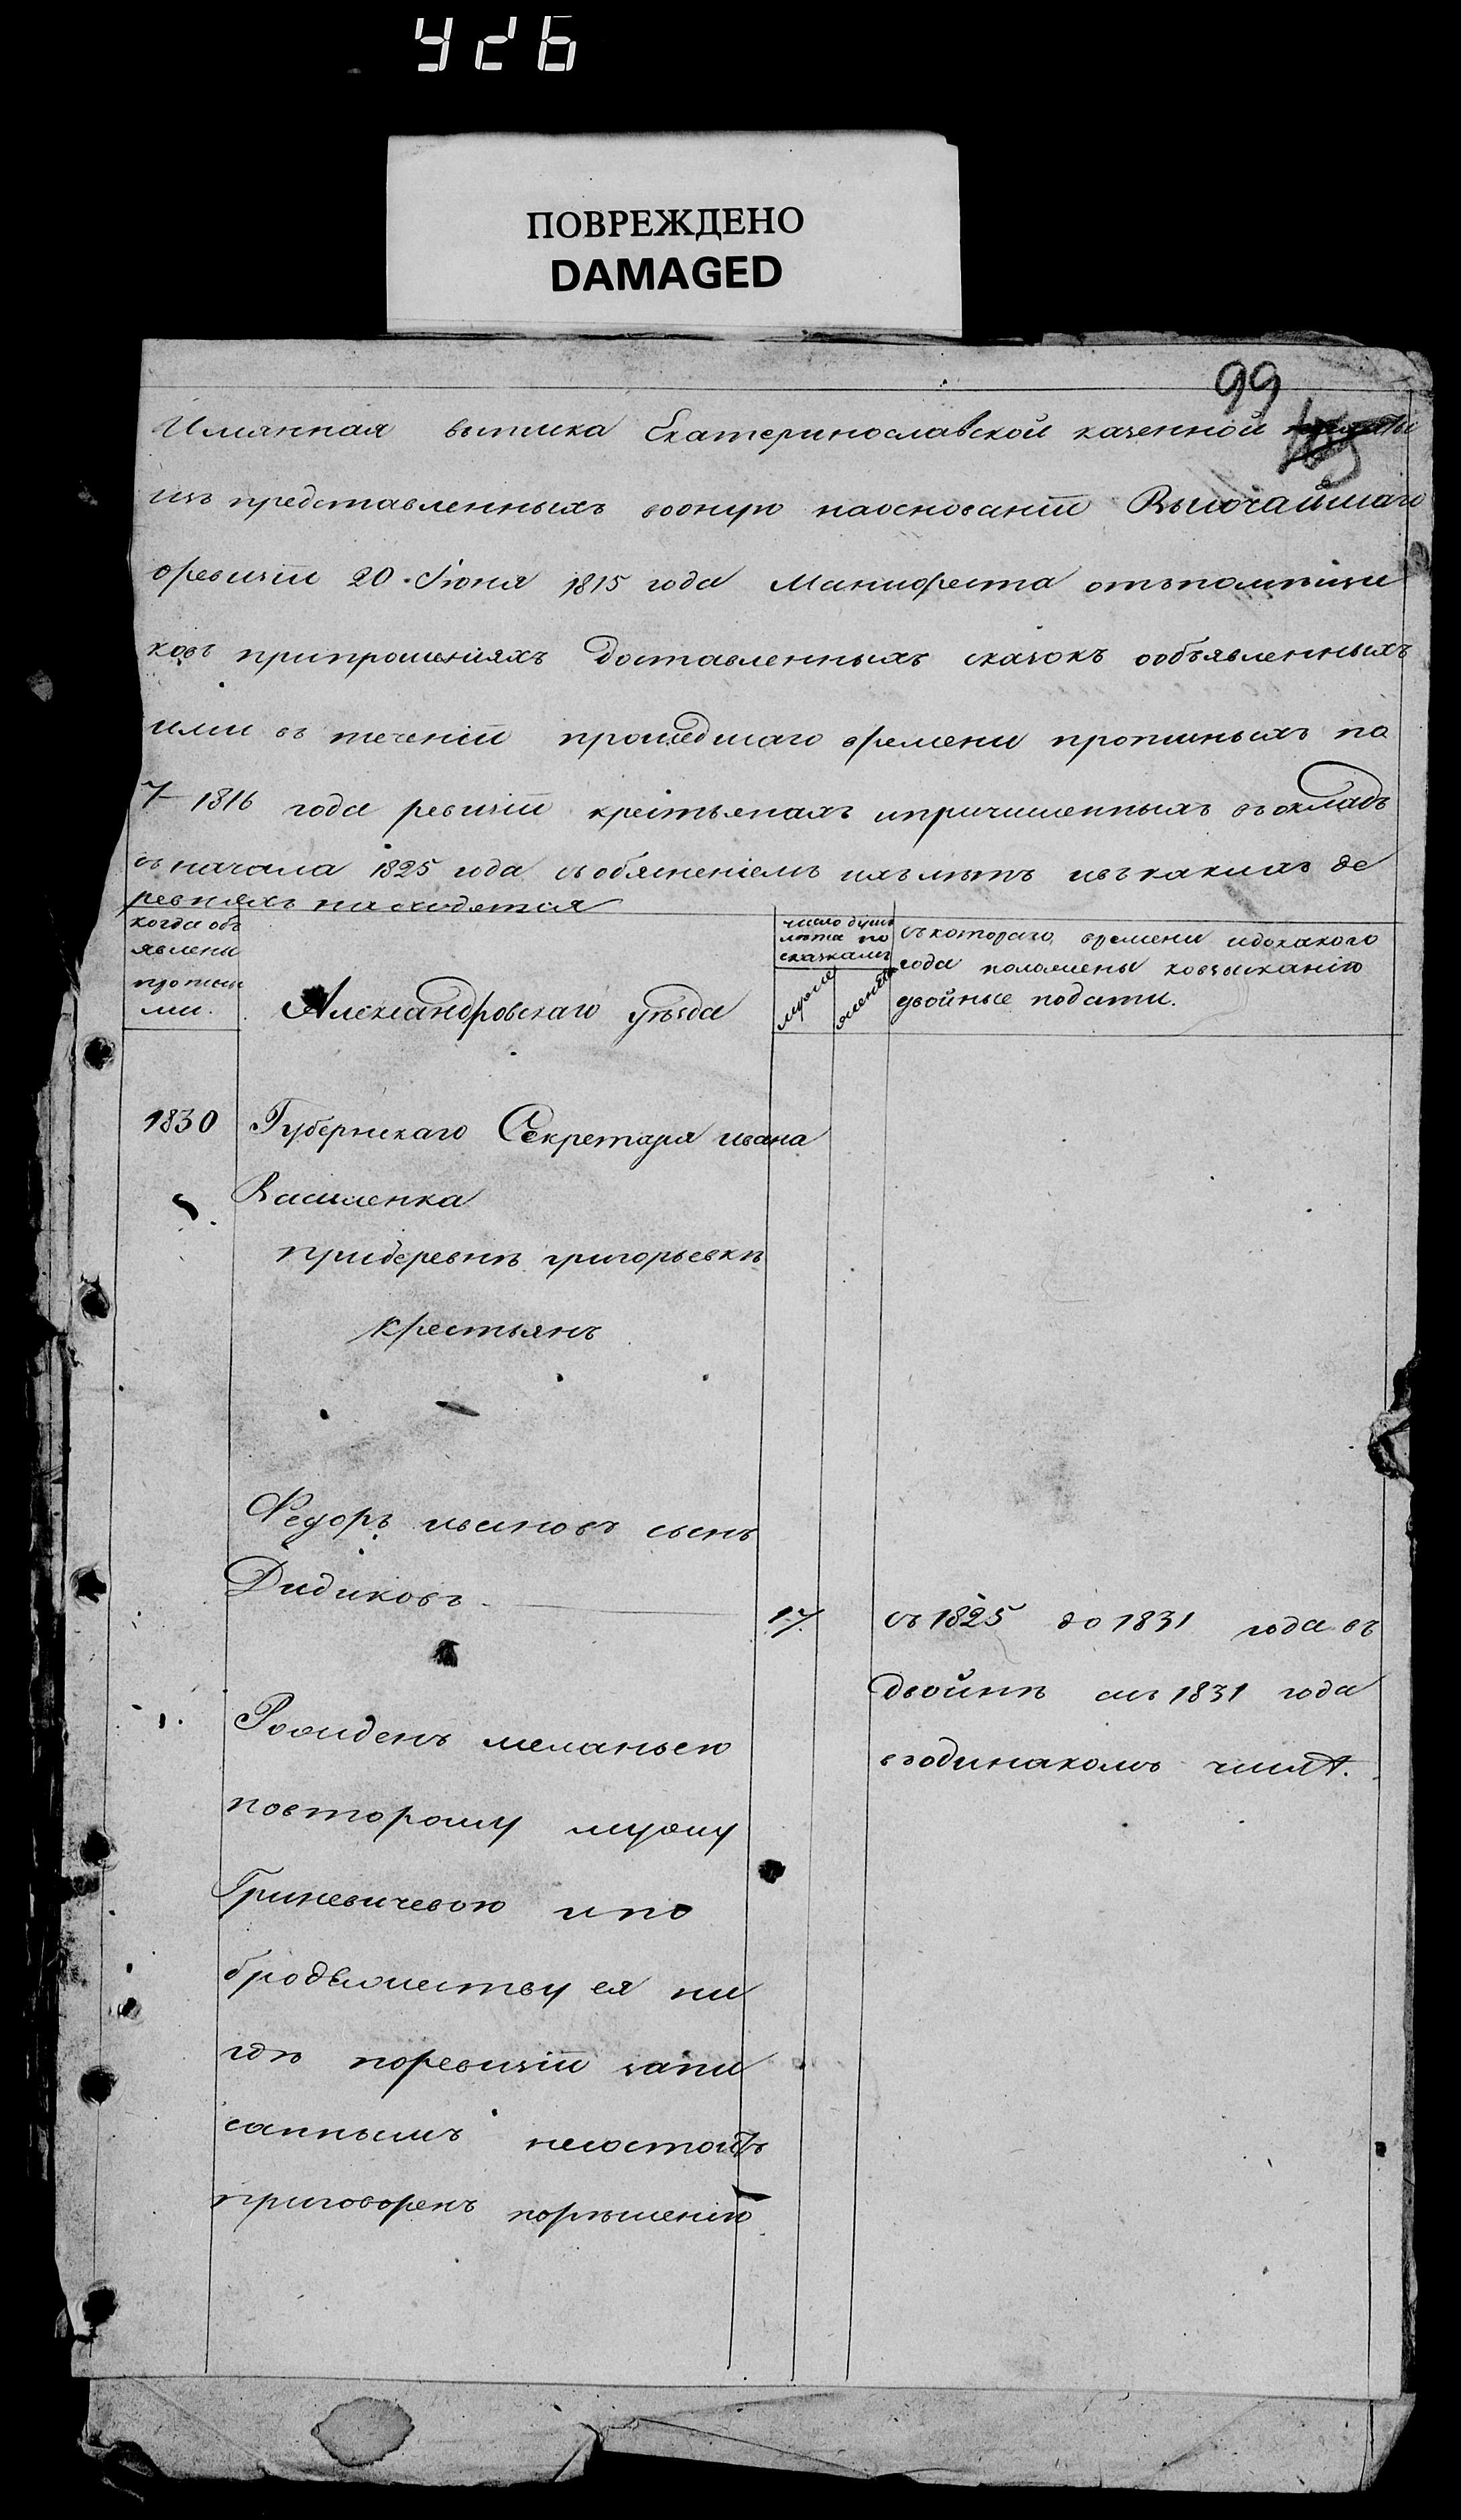 426
ПОВРЕЖДЕНО
DAMAGED
99
Имянная выписка Екатеринославской казенной
изъ представленныхъ вооную наоснованіи Высочайшаго
оревизіи 20. Іюня 1815 года Манифеста отъпомѣщи
ковъ припрошеніяхъ доставленныхъ сказокъ ообъявленныхъ
ими въ теченіи прошедшаго времени прописныхъ по
7 1816 года ревизіи крестьянахъ ипричисленныхъ въокладъ
съначала 1825 года собясненіемъ ихълѣтъ ивъкакихъ де
ревняхъ находятся
когда объ
явлены
пропис
ми.
Александровскаго уѣзда
число душъ
лѣта по
сказкамъ
муже
женска
съкотораго времени идокакого
года положены ковзысканію
двойные подати.
1830
Губернскаго Секретаря ивана
Василенка
придеревнѣ григорьевкѣ
крестьянъ
Федоръ ивановъ сынъ
Дидиковъ
17.
съ 1825 до 1831 года въ
двойнѣ а съ 1831 года
водинакомъ числѣ.
Рожденъ меланьею
повторому мужу
Гриневичевою ипо
бродяжеству ея ни
гдѣ поревизіи запи
саннымъ несостоитъ
приговоренъ порѣшенію